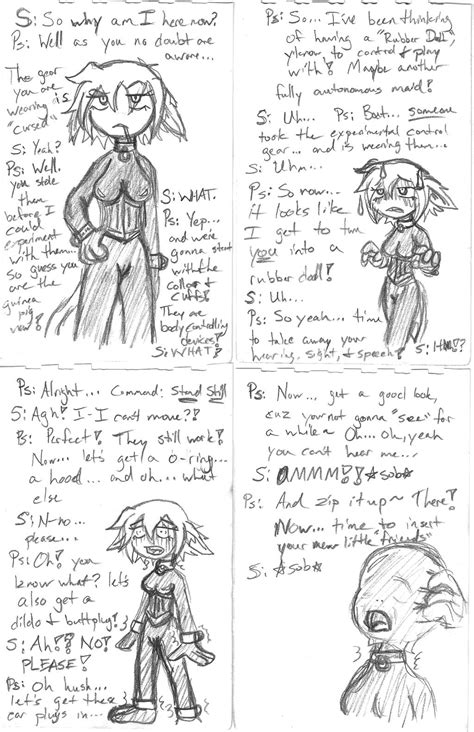 S: So why am I here now?
Ps: Well as you no doubt are
aware...
The gear
you are
wearing is
"cursed"
S: Yeah?
Ps: Well.
you stole
them
before I
could
experiment
with them...
so guess you
are the
guinea
pig
now!
S: WHAT.
Ps: Yep...
and were
gonna start
with the
collar &
cuffs!
They are
body controlling
devices!
S: WHAT!
Ps: So... I've been thinking
of having a "Rubber Doll",
yknow to control & play
with! Maybe another
fully autonomous maid!
S: Uh... Ps: But... someone
took the experimental control
gear... and is wearing them...
S: Uhm...
Ps: So now...
it looks like
I get to turn
you into a
rubber doll!
S: Uh...
Ps: So yeah... time
to take away your
hearing, sight, & speech!
Ps: Alright... Command: Stand Still
S: Agh! I-I can't move?!
Ps: Perfect! They still work!
Now... let's get a o-ring...
a hood... and oh... what
else
S: N-no...
please...
Ps: Oh! you
know what? let's
also get a
dildo & buttplug!
S: Ah!! NO!
PLEASE!
Ps: Oh hush...
let's get these
ear plugs in...
Ps: Now... get a good look,
cuz your not gonna "see" for
a while~ Oh... oh, yeah
you can't
hear me...
S: OMMM!! ☆sob☆
Ps: And zip it up~ There!
Now... time to insert
your new little friends"
S: ☆sob☆